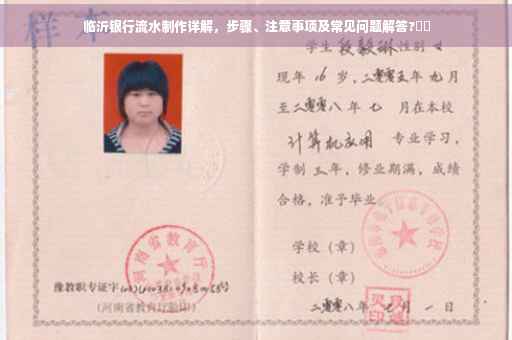 临沂银行流水制作详解，步骤、注意事项及常见问题解答?
样本
学生 段毅琳 性别 女
现年 16 岁，二零零五年 九月
至二零零八年 七 月在本校
计算机应用 专业学习，
学制 三年，修业期满，成绩
合格，准予毕业
学校（章）
校长（章）
二零零八年 月一日
豫教职专证字
（河南省教育厅验印）
河南省教育厅